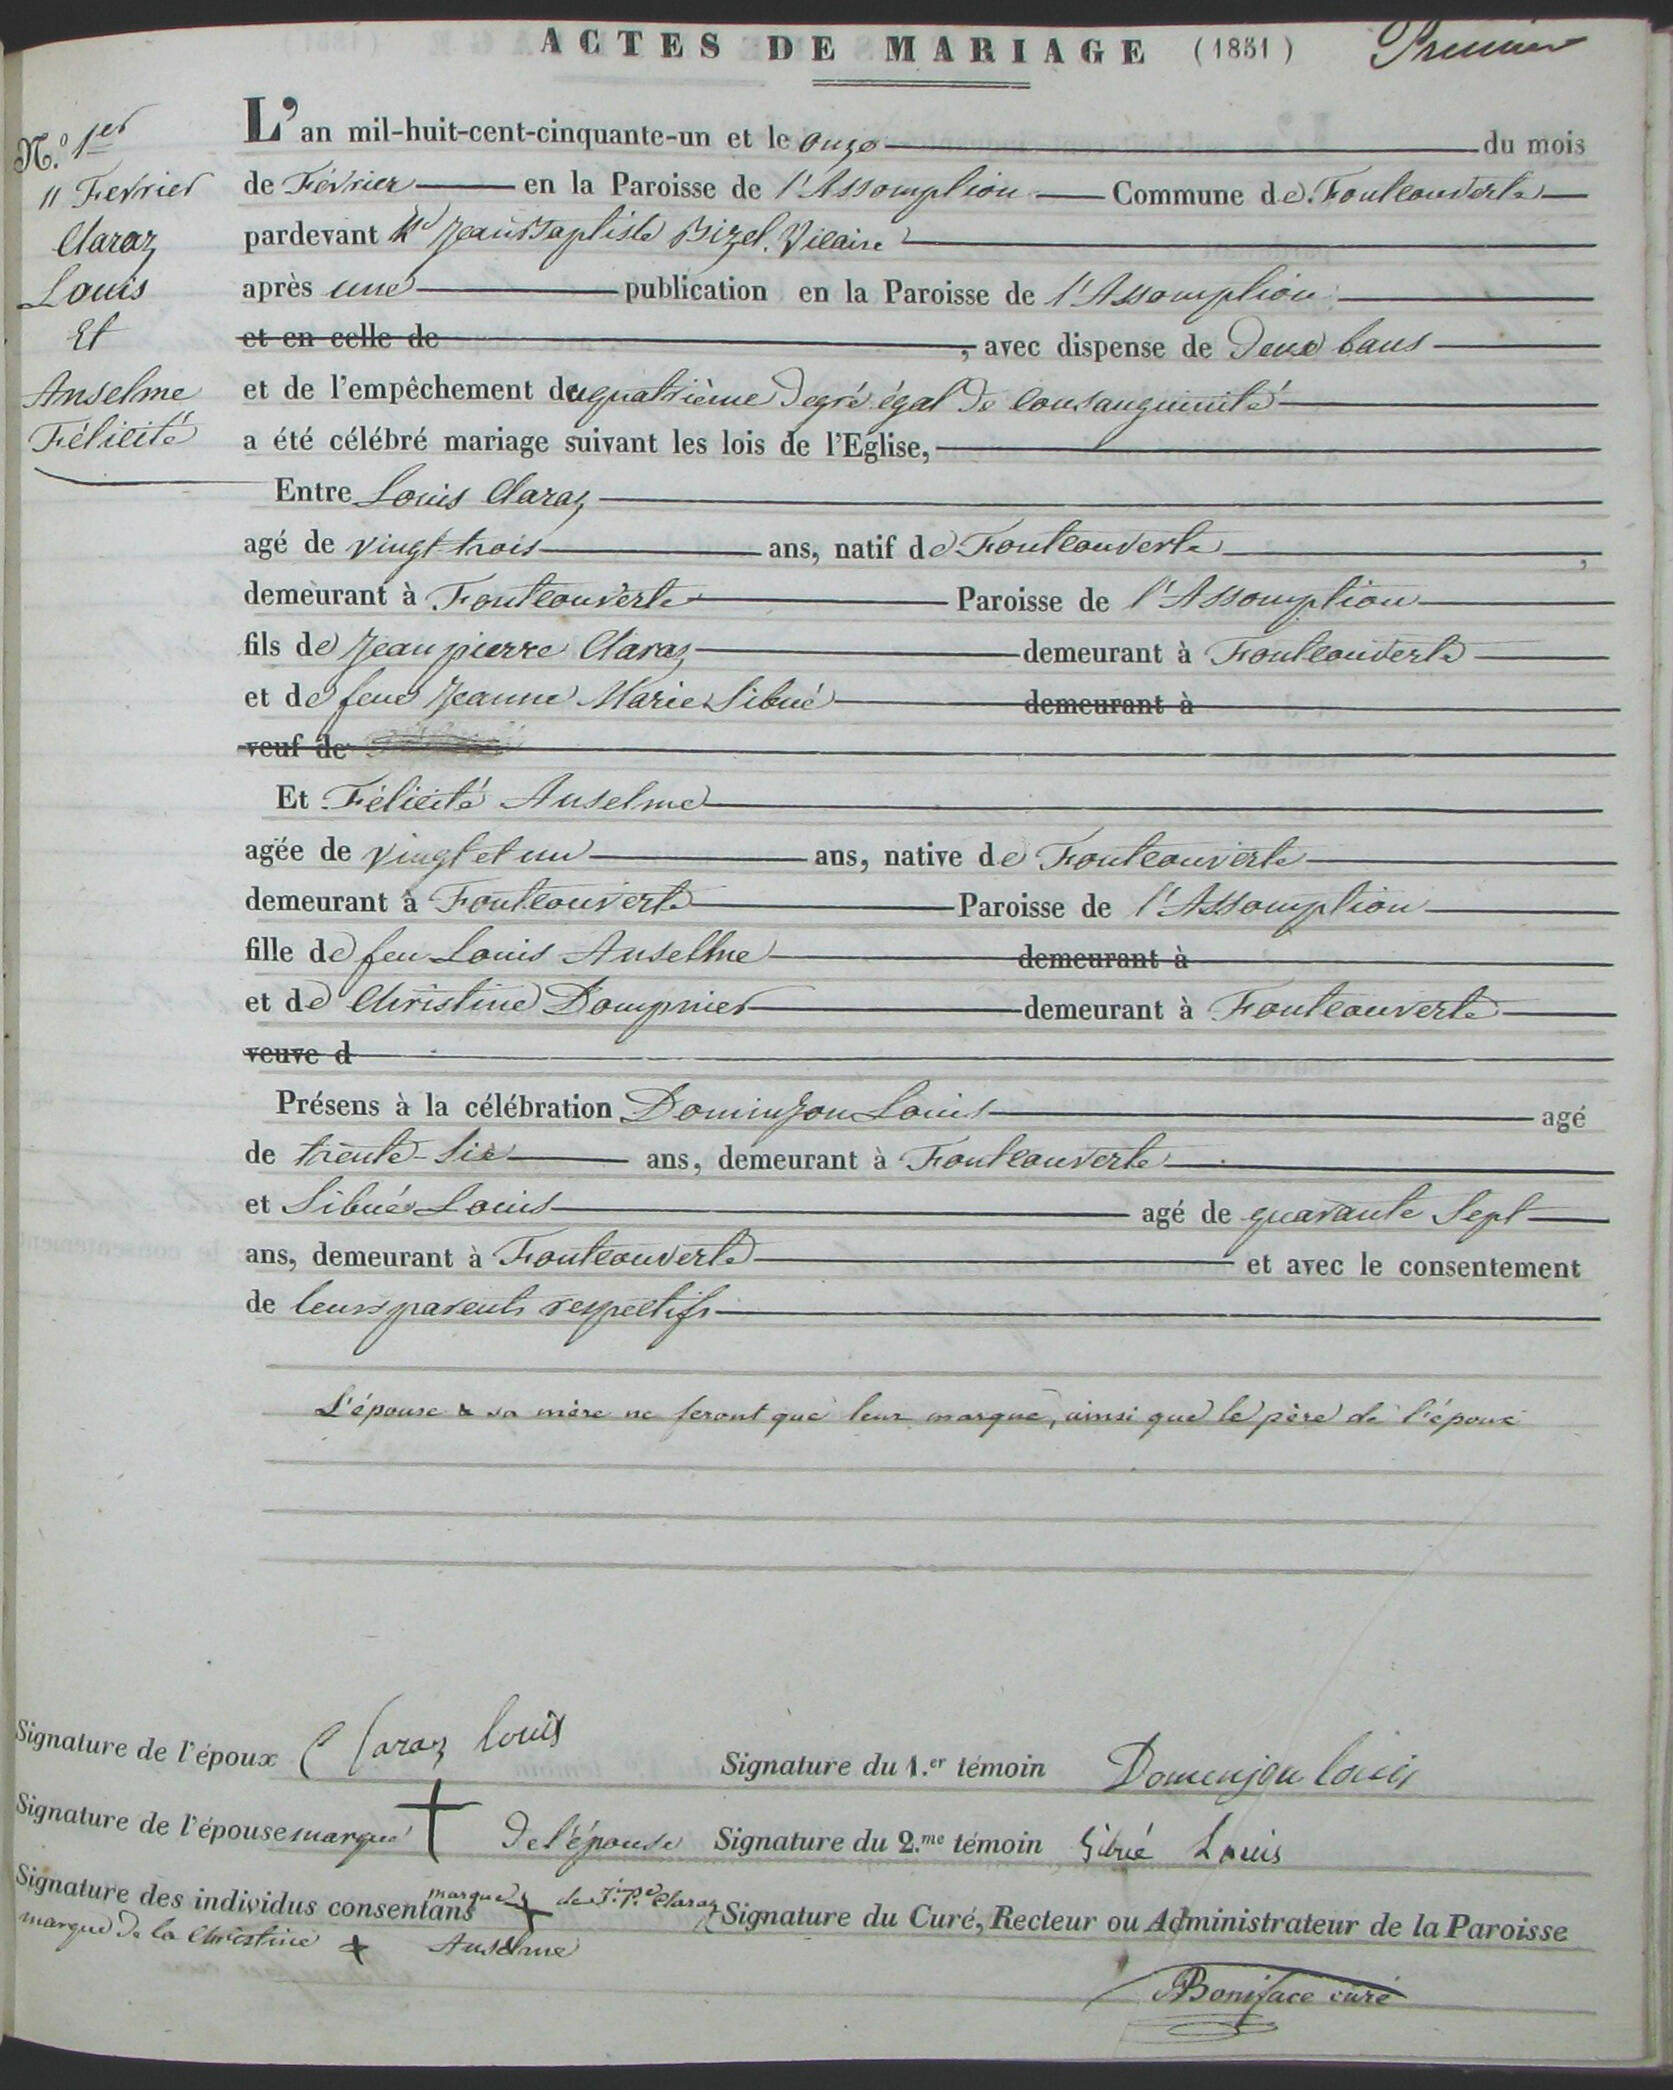 ACTES DE MARIAGE (1851) Premier
N.º 1er
11 Fevrier
Claraz
Louis
Et
Anselme
Félicité
L'an mil-huit-cent-cinquante-un et le onze du mois
de Février en la Paroisse de l'Assomption Commune de Fontcouverte
pardevant Rd Jean Baptiste Bizel Vicaire
après une publication en la Paroisse de l'Assomption
et en celle de , avec dispense de Deux bans
et de l'empêchement du quatrième Degré égal de consanguinité
a été célébré mariage suivant les lois de l'Eglise,
Entre Louis Claraz
agé de vingt trois ans, natif de Fontcouverte ,
demeurant à Fontcouverte Paroisse de l'Assomption
fils de Jean pierre Claraz demeurant à Fontcouverte
et de feue Jeanne Marie Sibué demeurant à
veuf de
Et Félicité Anselme
agée de vingt et un ans, native de Fontcouverte
demeurant à Fontcouverte Paroisse de l'Assomption
fille de feu Louis Anselme demeurant à
et de Christine Dompnier demeurant à Fontcouverte
veuve d
Présens à la célébration Dominjon Louis agé
de trente-six ans, demeurant à Fontcouverte
et Sibué Louis agé de quarante Sept
ans, demeurant à Fontcouverte et avec le consentement
de leurs parents respectifs
L'épouse & sa mère ne feront que leur marque, ainsi que le père de l'époux
Signature de l'époux Claraz louis
Signature du 1.er témoin Domenjon louis
Signature de l'épouse marque + De l'épouse
Signature du 2.me témoin Sibué Louis
Signature des individus consentans marque + de J.n P.e Claraz
marque De la Christine + Anselme
Signature du Curé, Recteur ou Administrateur de la Paroisse
Boniface curé